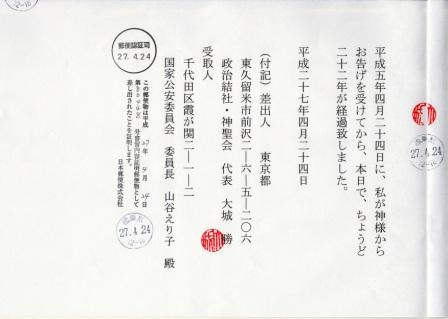 平成五年四月二十四日に、私が神様から
お告げを受けてから、本日で、ちょうど
二十二年が経過致しました。
平成二十七年四月二十四日
(付記) 差出人 東京都
東久留米市前沢二―六―五―二〇六
政治結社・神聖会 代表 大城 勝
受取人
千代田区霞が関二―一―二
国家公安委員会 委員長 山谷えり子 殿
郵便認証司
27. 4. 24
この郵便物は平成27年4月24日
号書留内容証明郵便物として
差し出されたことを証明します。
日本郵便株式会社
27. 4. 24
27. 4. 24
27. 4. 24